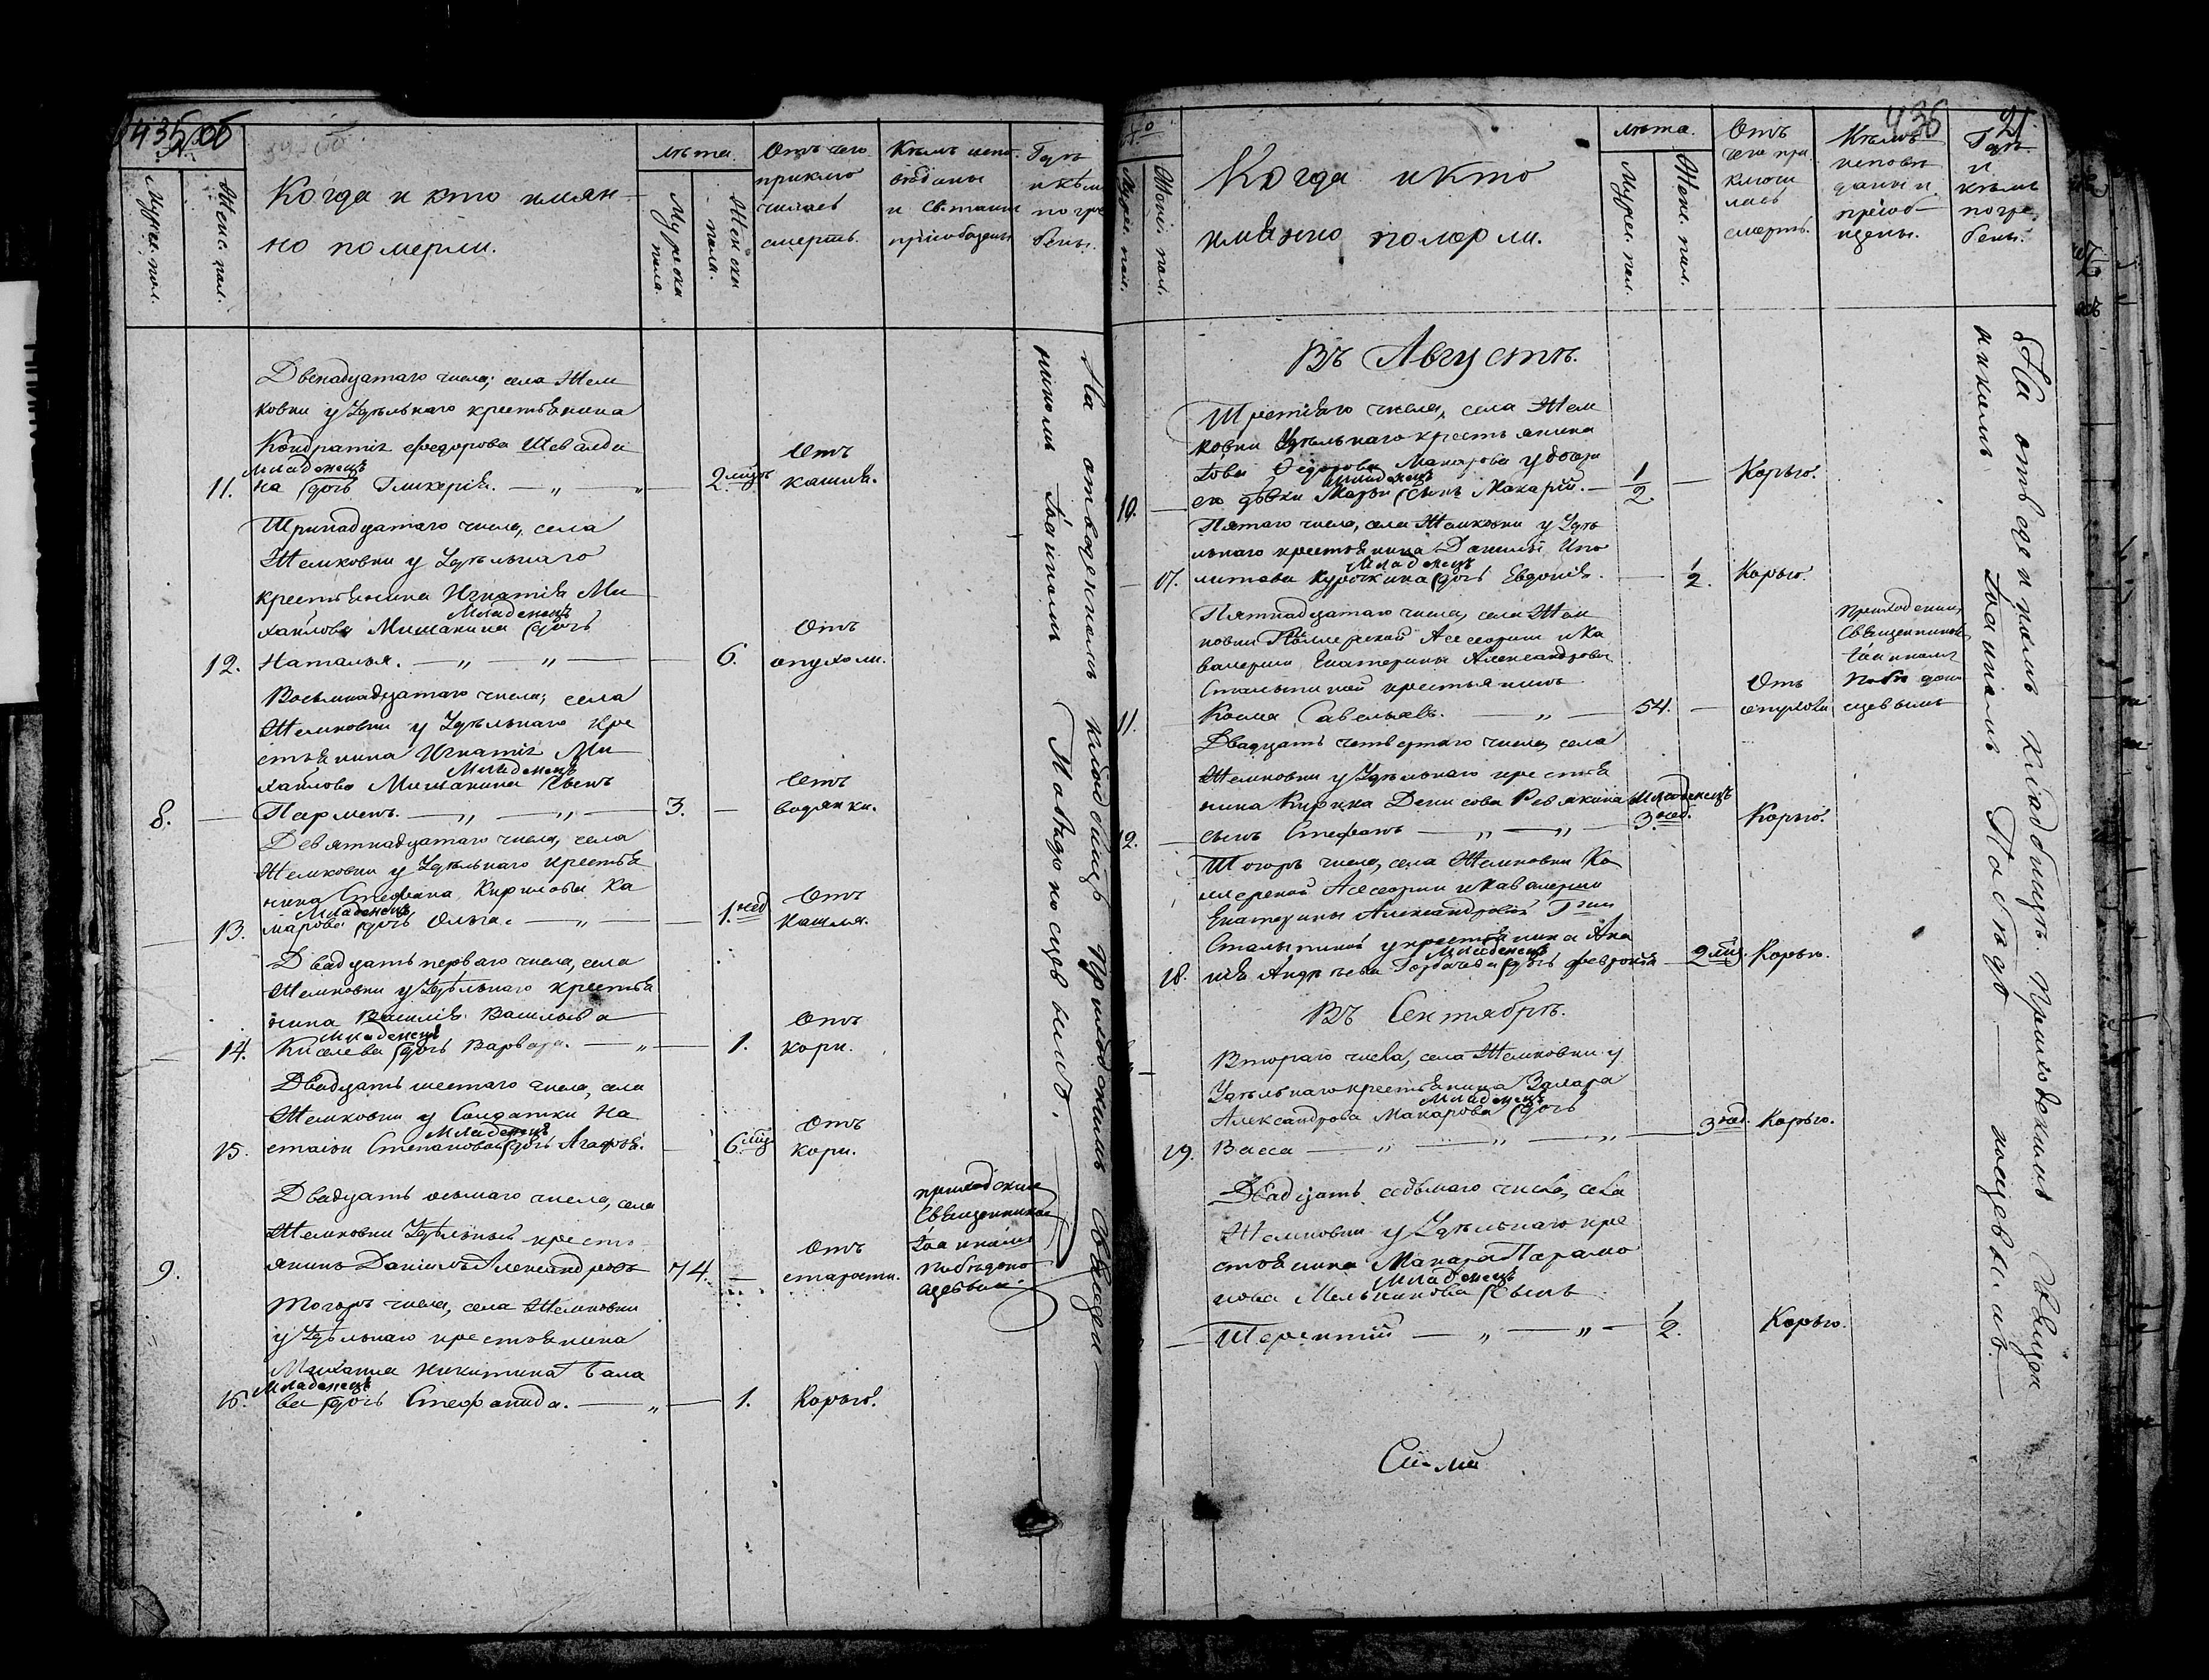 435 об
Мужес. пол.
Женс. пол.
Когда и кто имян-
но померли.
лѣта.
Мужеска пола.
Женска пола.
Отъ чего
приклю
чилась
смерть.
Кѣмъ испо-
вѣданы
и св. таинъ
пріобщены
Гдѣ
и кѣмъ
погре
бены.
Двенадцатаго числа, села Жем
ковки у Удѣльнаго крестьянина
Кондратія Федорова Шевалди
Младенецъ
11. на дочь Гликерія. 2 мца Отъ кашля.
Тринадцатаго числа, села
Жемковки у Удѣльнаго
крестьянина Игнатія Ми
хайлова Мишанина Младенецъ дочь
12. Наталья. 6. Отъ опухоли.
Восьмнадцатаго числа, села
Жемковки у Удѣльнаго кре
стьянина Игнатія Ми
хайлова Мишанина Младенецъ сынъ
8. Парменъ. 3. Отъ водянки.
Девятнадцатаго числа, села
Жемковки у Удѣльнаго крестья
нина Стефана Кирилова Ка
Младенецъ
13. марова дочь Ольга. 1. нед Отъ кашля.
Двадцать перваго числа, села
Жемковки у Удѣльнаго крестья
нина Василія Васильева
Младенецъ
14. Киселева дочь Варвара. 1. Отъ кори.
Двадцать шестаго числа, села
Жемковки у Солдатки На
Младенецъ
15. стасіи Степановой дочь Агафія. 6. мцъ Отъ кори.
Двадцать осьмаго числа, села
Жемковки Удѣльный кресть
9. янинъ Даніилъ Александровъ 74. Отъ старости.
приходским
Священником
Іоанномъ
Побѣдоно
сцевым.
Тогожъ числа, села Жемковки
у Удѣльнаго крестьянина
Михаила Никитина Бала
Младенецъ
16. ва дочь Стефанида. 1. Корью.
На отведенномъ кладбищѣ Приходскимъ Священ
никомъ Іоанномъ Побѣдоносцевымъ.
436
21
Мужес. пол.
Женс. пол.
Когда и кто
имянно померли.
лѣта.
Мужес. пол.
Женс. пол.
Отъ
чего при
ключи
лась
смерть.
Кѣмъ
исповѣ
даны и
пріоб-
щены.
Гдѣ
и
кѣмъ
погре
бены.
Въ Августѣ.
Третьяго числа, села Жем
ковки Удѣльнаго крестьянина
Федорова Макарова у дочери
10. его дѣвки Марьи Младенецъ сынъ Макарій. 1/2 Корью.
Пятаго числа, села Жемковки у Удѣ
льнаго крестьянина Данилы Ипо
17. литова Курочкина Младенецъ дочь Евдокія. 1/2. Корью.
Пятнадцатаго числа, села Жем
ковки Коллежской Асесорши и Ка
валерши Екатерины Александровы
Столыпиной крестьянинъ
11. Косма Савельевъ. 54. Отъ опухоли
Приходским
Священником
Іоанномъ
Побѣдоно
сцевымъ
Двадцать четвертаго числа села
Жемковки у Удѣльнаго крестья
нина Кирика Денисова Ревякина Младенецъ
12. сынъ Стефанъ 3. нед. Корью.
Тогожъ числа, села Жемковки Ко
лежской Асесорши и Кавалерши
Екатерины Александровой Гжи
Столыпиной у крестьянина Ана
18. нія Андрѣева Горбачева Младенецъ дочь Февронія 2 мцъ. Корью.
Въ Сентябрѣ.
Втораго числа, села Жемковки у
Удѣльнаго крестьянина Захара
Александрова Макарова Младенецъ дочь
19. Васса 3 нед. Корью.
Двадцать седьмаго числа, села
Жемковки у Удѣльнаго кре
стьянина Макара Парамо
нова Мельникова Младенецъ сынъ
Терентій 1/2. Корью.
На отведенномъ кладбищѣ Приходскимъ Священ
никомъ Іоанномъ Побѣдо носцевымъ.